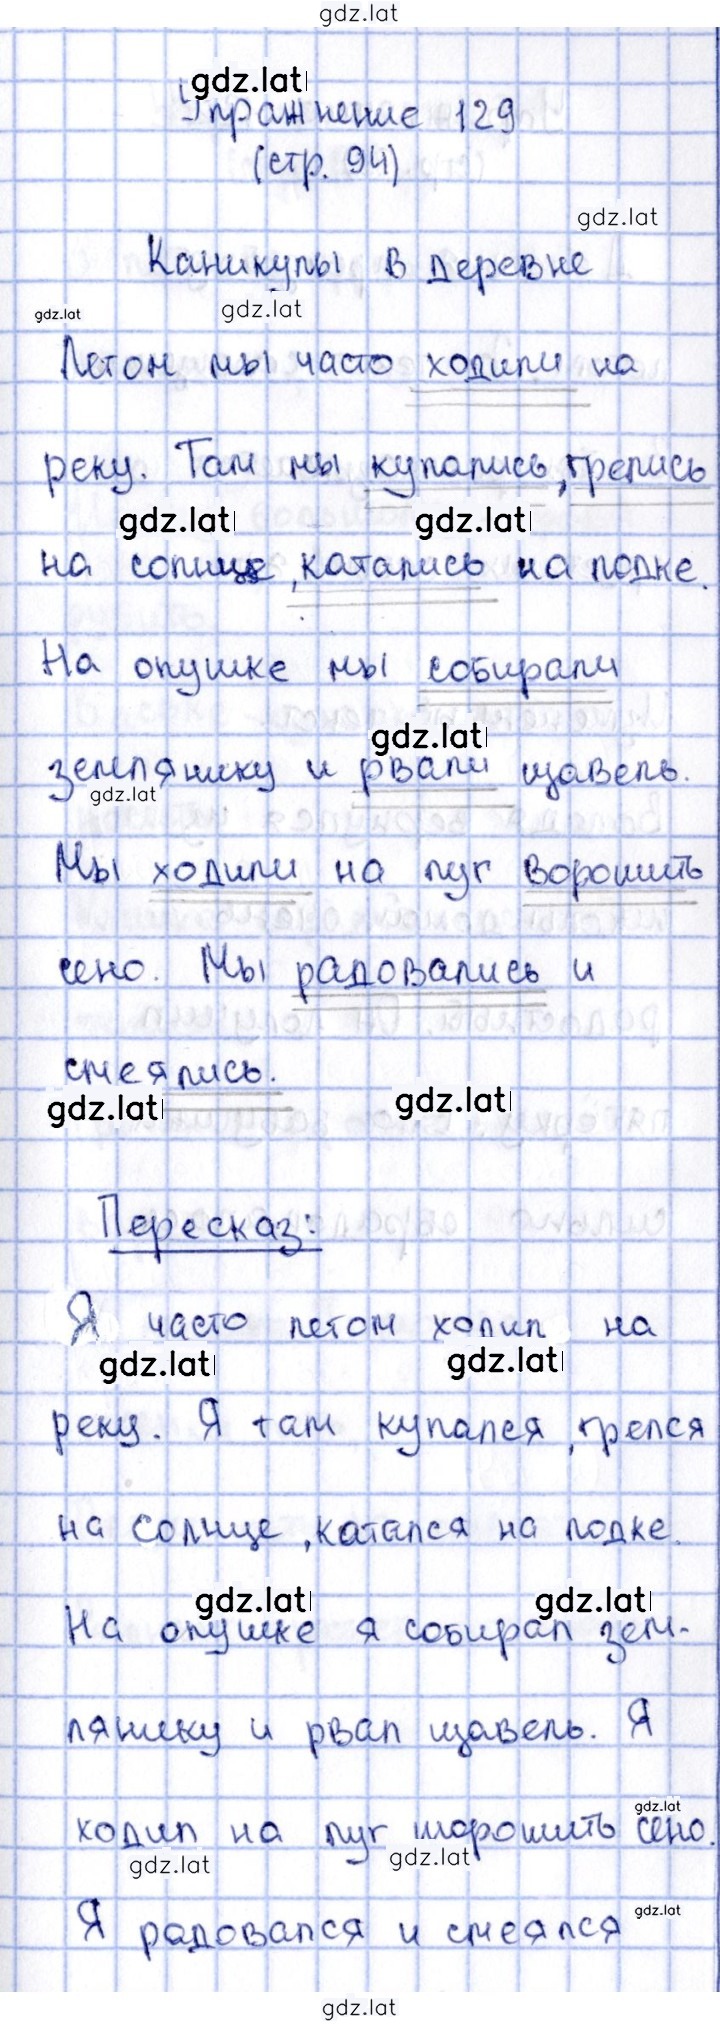 gdz.lat
gdz.lat
Упражнение 129
(стр. 94)
gdz.lat
Каникулы в деревне
gdz.lat
gdz.lat
Летом мы часто ходили на
реку. Там мы купались, грелись
gdz.lat gdz.lat
на солнце, катались на лодке.
На опушке мы собирали
gdz.lat
землянику и рвали щавель.
gdz.lat
Мы ходили на луг ворошить
сено. Мы радовались и
смеялись.
gdz.lat gdz.lat
Пересказ:
Я часто летом ходил на
gdz.lat gdz.lat
реку. Я там купался, грелся
на солнце, катался на лодке.
gdz.lat gdz.lat
На опушке я собирал зем-
лянику и рвал щавель. Я
gdz.lat
ходил на луг шорошить сено.
gdz.lat gdz.lat
Я радовался и смеялся
gdz.lat
gdz.lat